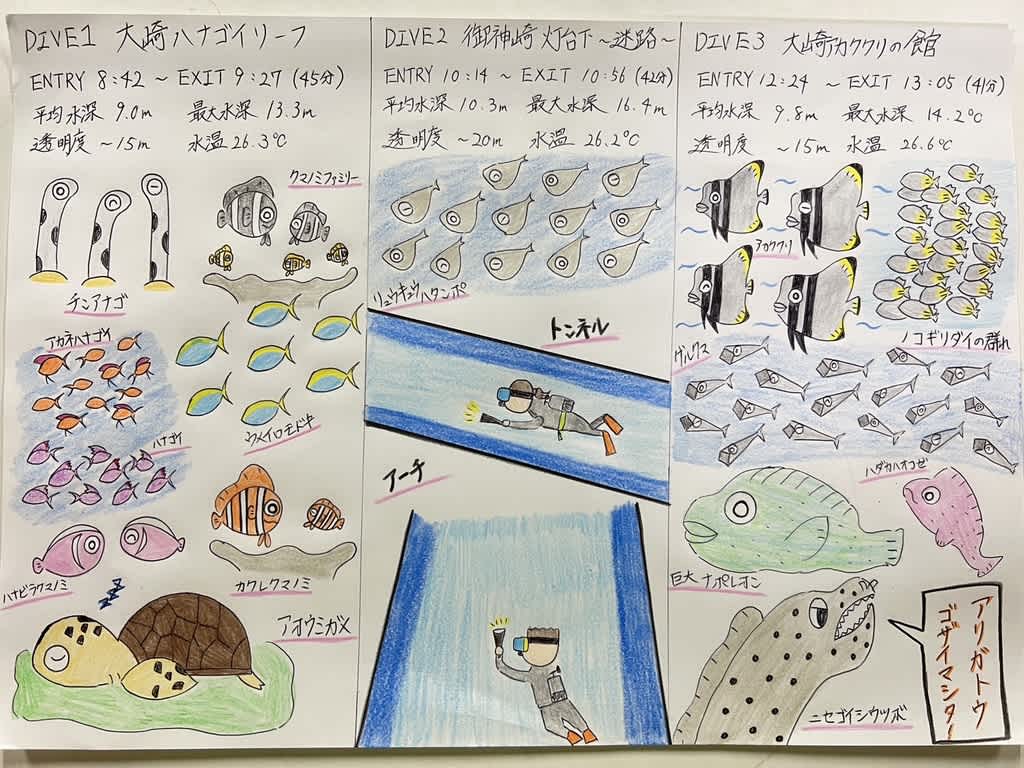 DIVE1 大崎ハナゴイリーフ
ENTRY 8:42 ~ EXIT 9:27 (45分)
平均水深 9.0m 最大水深 13.3m
透明度 ~15m 水温 26.3℃
クマノミファミリー
チンアナゴ
アカネハナゴイ
ハナゴイ
ウメイロモドキ
ハナビラクマノミ
カクレクマノミ
zzz
アオウミガメ
DIVE2 御神崎 灯台下 ~迷路~
ENTRY 10:14 ~ EXIT 10:56 (42分)
平均水深 10.3m 最大水深 16.4m
透明度 ~20m 水温 26.2℃
リュウキュウハタンポ
トンネル
アーチ
DIVE3 大崎アカククリの館
ENTRY 12:24 ~ EXIT 13:05 (41分)
平均水深 9.8m 最大水深 14.2℃
透明度 ~15m 水温 26.6℃
アカククリ
ノコギリダイの群れ
グルクン
ハダカハオコゼ
巨大ナポレオン
ニセゴイシウツボ
アリガトウ
ゴザイマシター